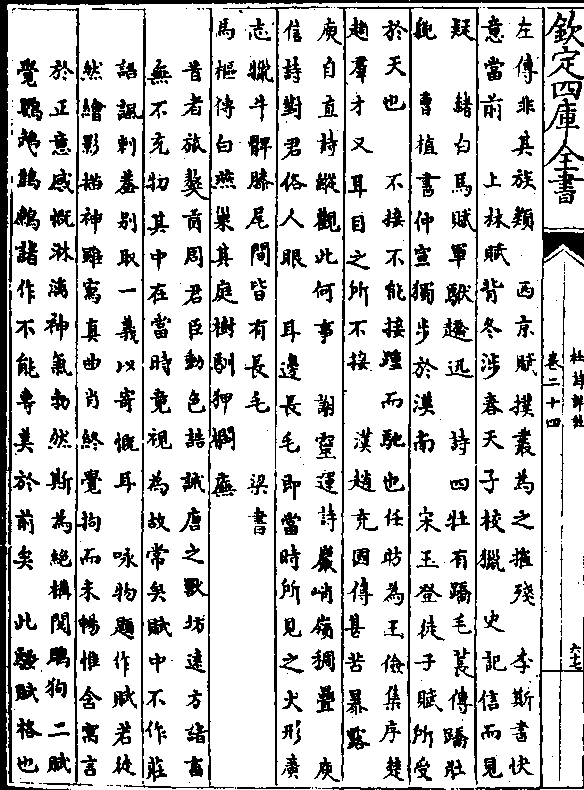 欽定四庫全書
杜詩詳註
卷二十四
六七
左傳非其族類　西京賦撲叢為之摧殘　李斯書快
意當前　上林賦背冬涉春天子校獵　史記信而見
疑　赭白馬賦軍駥趫迅　詩四牡有蹻毛萇傳蹻壯
貌　曹植書仲宣獨步於漢南　宋玉登徒子賦所受
於天也　不接不能接踵而馳也任昉為王儉集序楚
趙羣才又耳目之所不接　漢趙充國傳甚苦暴露
庾自直詩縱觀此何事　謝靈運詩巖峭嶺稠疊　庾
信詩對君俗人眼　耳邊長毛即當時所見之犬形廣
志獵牛髀膝尾間皆有長毛　梁書
馬樞傳白燕巢其庭樹馴狎櫚廡
昔者旅獒貢周君臣動色誥誡唐之獸坊遠方諸畜
無不充牣其中在當時竟視為故常矣賦中不作莊
語諷刺蓋別取一義以寄慨耳　咏物題作賦若徒
然繪影描神雖寫真曲肖終覺拘而未暢惟含寓言
於正意感慨淋漓神氣勃然斯為絕構閱鵰狗二賦
覺鸚鵡鷦鷯諸作不能專美於前矣　此騷賦格也